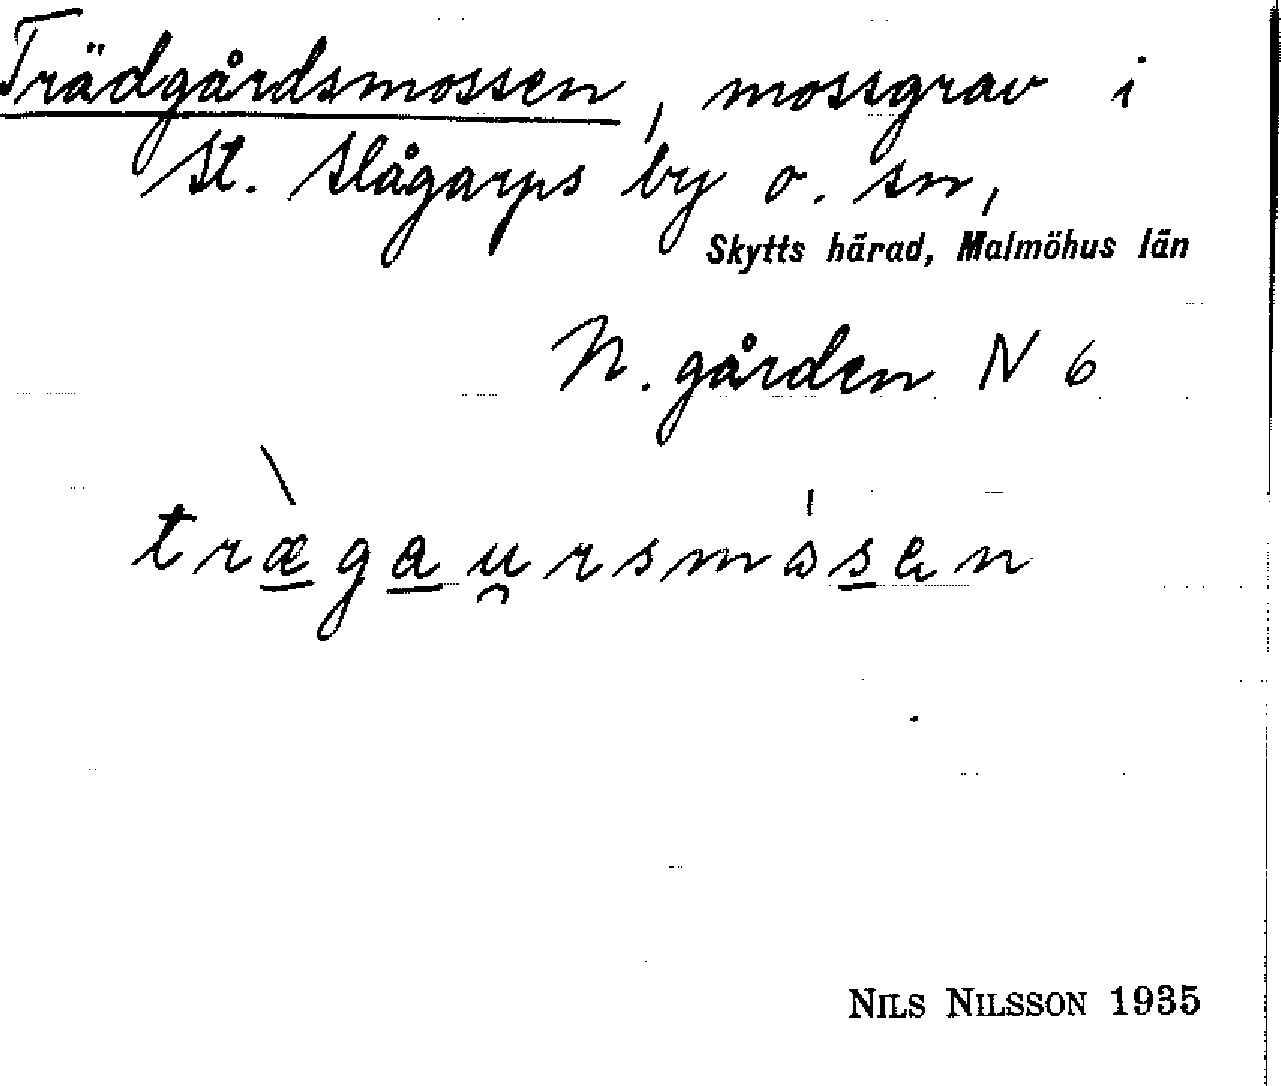 Trädgårdsmossen, mossgrav i
St. Slågarps by o. sn,
Skytts härad, Malmöhus län
N. gården N 6
træ̠̀ga̠u̯rsmɔ́s̠ən
NILS NILSSON 1935